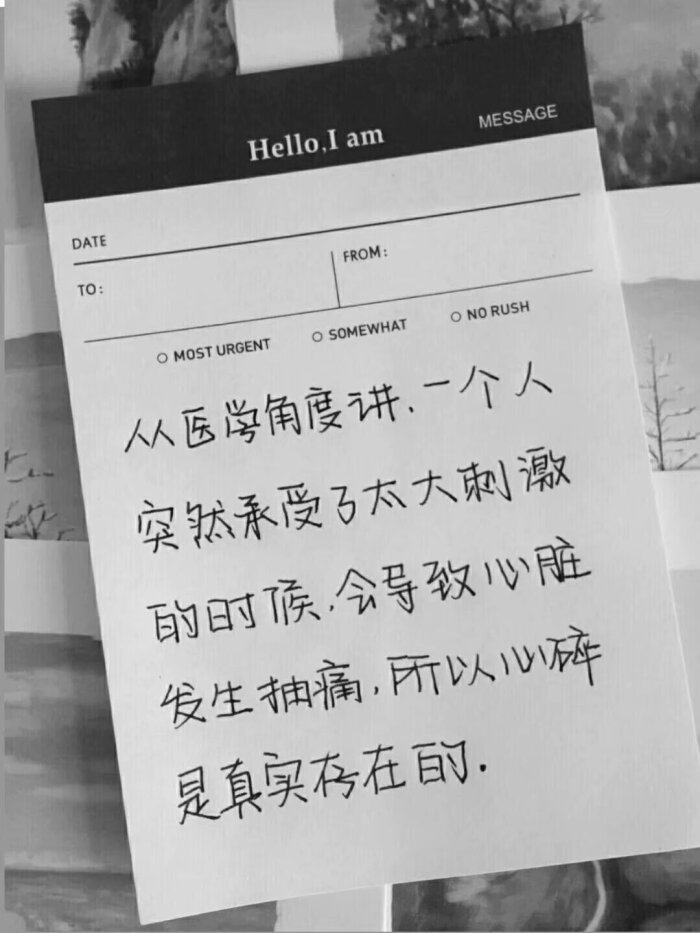 Hello,I am
MESSAGE
DATE
TO:
FROM:
MOST URGENT
SOMEWHAT
NO RUSH
从医学角度讲.一个人
突然承受了太大刺激
的时候.会导致心脏
发生抽痛,所以心碎
是真实存在的.